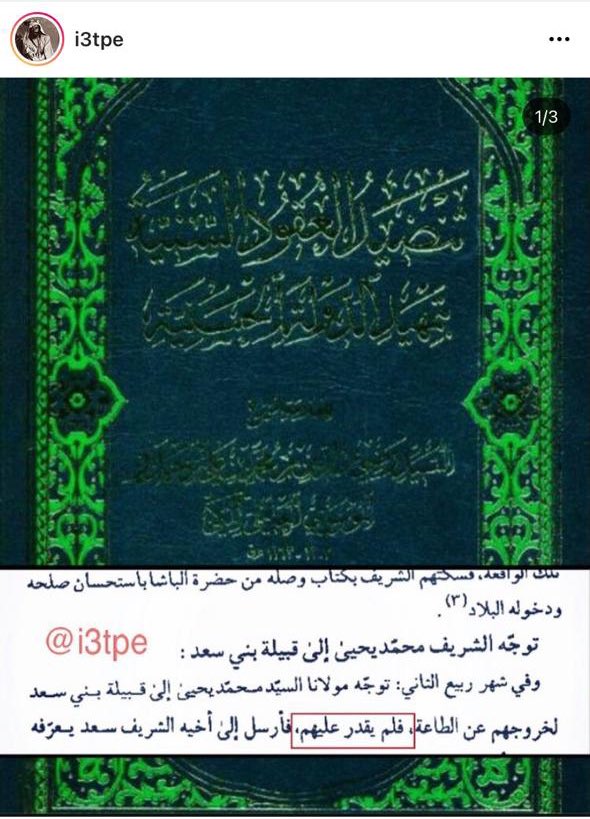 i3tpe
1/3
تنضيد العقود السنية
بتمهيد الدولة الحسنية
تلك الواقعة، فسكتهم الشريف بكتاب وصله من حضرة الباشا باستحسان صلحه
ودخوله البلاد(٣).
@i3tpe
توجّه الشريف محمّد يحيىٰ إلىٰ قبيلة بني سعد :
وفي شهر ربيع الثاني: توجّه مولانا السيّد محمّد يحيىٰ إلىٰ قبيلة بني سعد
لخروجهم عن الطاعة، فلم يقدر عليهم، فأرسل إلىٰ أخيه الشريف سعد يعرّفه